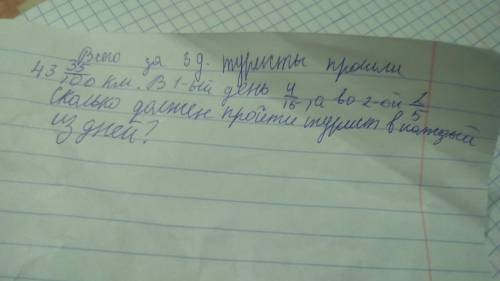 Всего за 3 д. туристы прошли
43 35/100 км. В 1-ый день 4/15, а во 2-ой 2/5
сколько должен пройти турист в каждый
из дней?